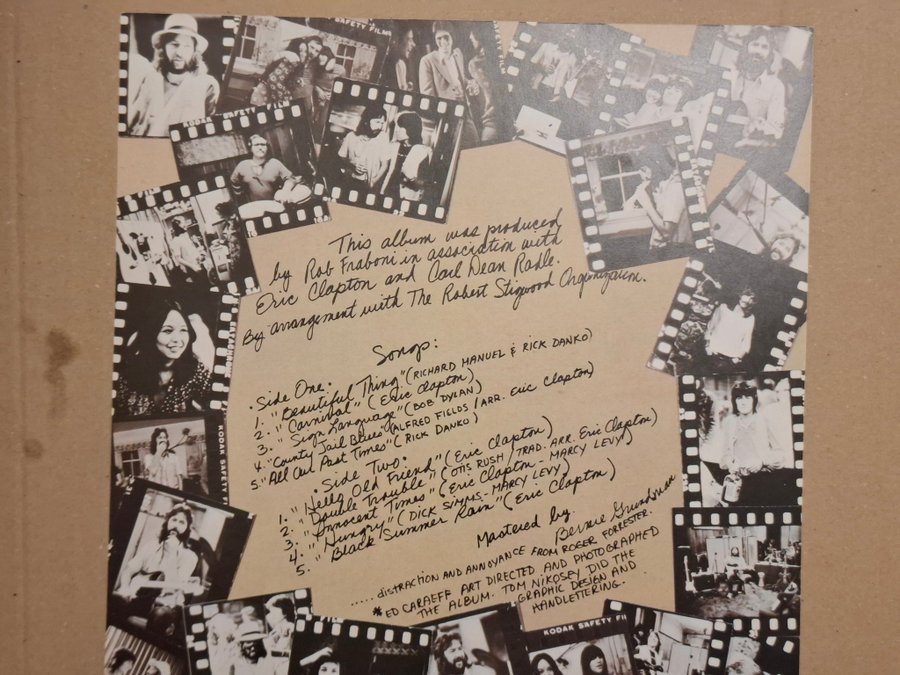 SAFETY FILM
KODAK SAFETY FILM
This album was produced
by Rob Fraboni in association with
Eric Clapton and Carl Dean Radle.
By arrangement with The Robert Stigwood Organization.
Songs:
• Side One •
1. "Beautiful Thing" (RICHARD MANUEL & RICK DANKO)
2. "Carnival" (Eric Clapton)
3. "Sign Language" (BOB DYLAN)
4. "County Jail Blues" (ALFRED FIELDS / ARR. Eric Clapton)
5. "All Our Past Times" (RICK DANKO)
• Side Two •
1. "Hello Old Friend" (Eric Clapton)
2. "Double Trouble" (OTIS RUSH / TRAD. ARR. Eric Clapton)
3. "Innocent Times" (Eric Clapton - MARCY LEVY)
4. "Hungry" (DICK SIMMS - MARCY LEVY)
5. "Black Summer Rain" (Eric Clapton)
Mastered by
Bernie Grundman
..... DISTRACTION AND ANNOYANCE FROM ROGER FORRESTER.
* ED CARAEFF ART DIRECTED AND PHOTOGRAPHED
THE ALBUM. TOM NIKOSEY DID THE
GRAPHIC DESIGN AND
HANDLETTERING.
KODAK SAFETY FIL
KODAK SAFETY FI